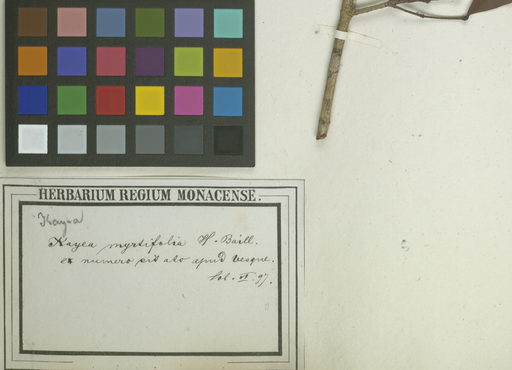 HERBARIUM REGIUM MONACENSE.
Kayea
Kayea myrtifolia H. Baill.
ex numero citato apud Vesque.
Sol. VI. 97.